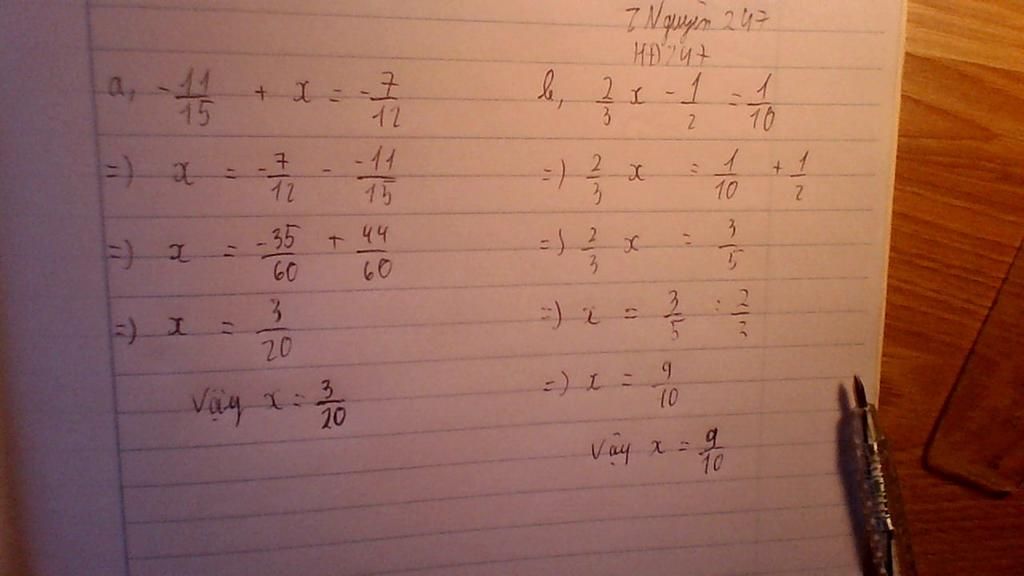 Z Nguyễn 247
HĐ 247
a, -11/15 + x = -7/12
=) x = -7/12 - -11/15
=) x = -35/60 + 44/60
=) x = 3/20
Vậy x = 3/20
b, 2/3 x - 1/2 = 1/10
=) 2/3 x = 1/10 + 1/2
=) 2/3 x = 3/5
=) x = 3/5 : 2/3
=) x = 9/10
Vậy x = 9/10